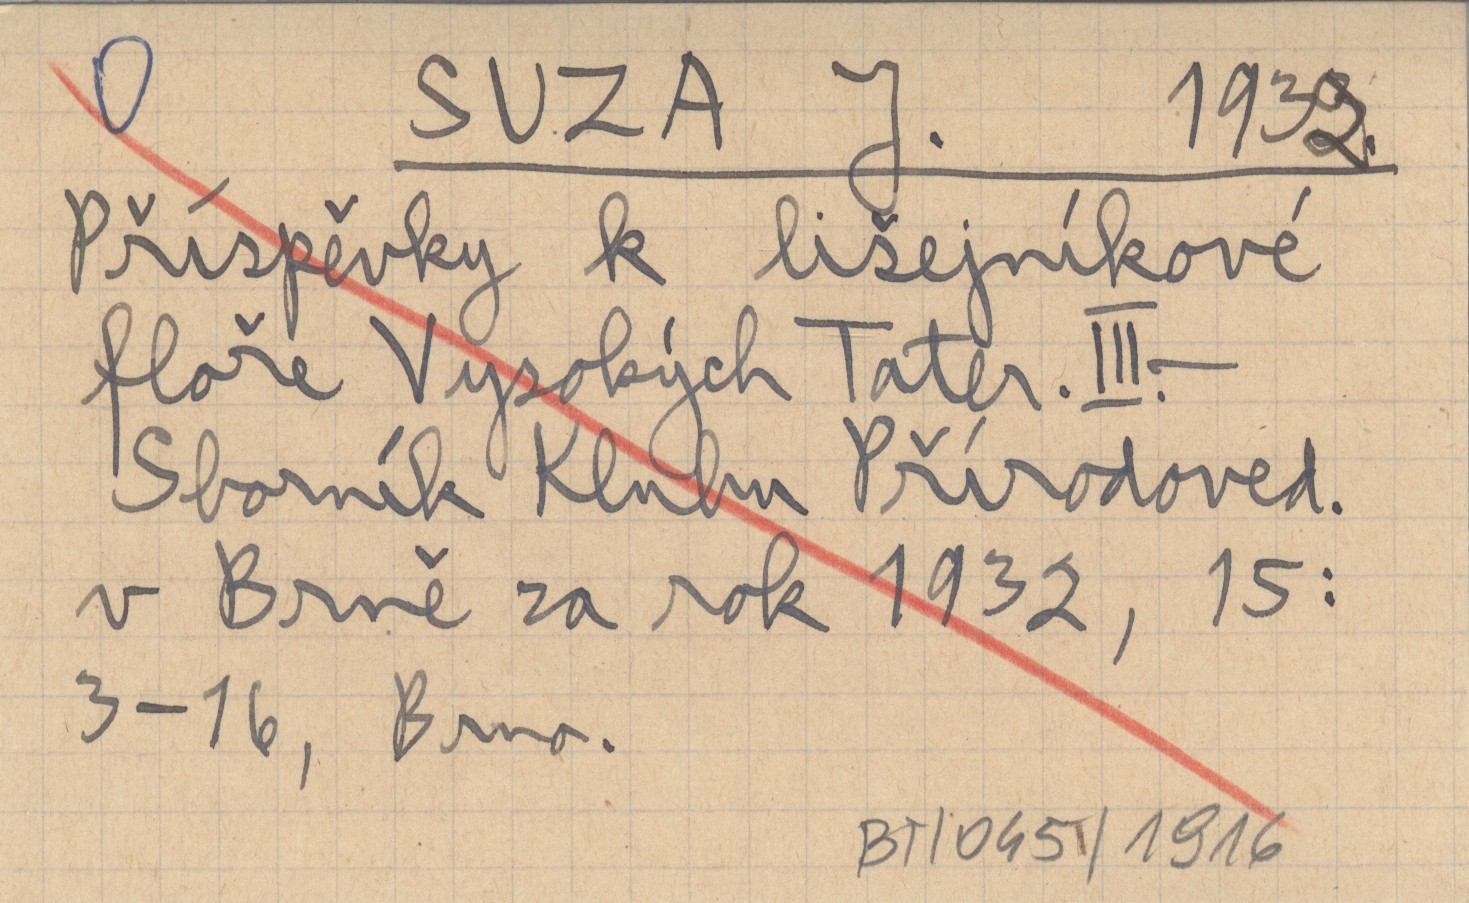 O SUZA J. 1933.
Příspěvky k lišejníkové
floře Vysokých Tater. III. —
Sborník Klubu Přírodoved.
v Brně za rok 1932, 15:
3-16, Brno.
BT/045/1916